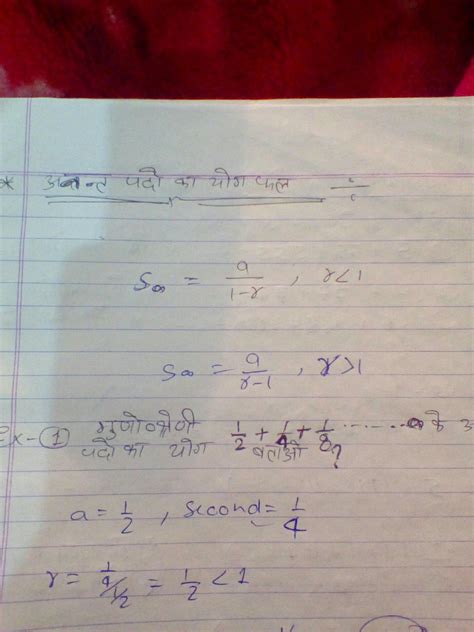 * अनन्त पदो का योग फल ÷
S∞ = a/(1-r) , r<1
S∞ = a/(r-1) , r>1
Ex-① गुणोश्रेणी 1/2 + 1/4 + 1/8 ........∞ के अ
पदो का योग बताओ ?
a = 1/2 , second = 1/4
r = 1/4/1/2 = 1/2 < 1